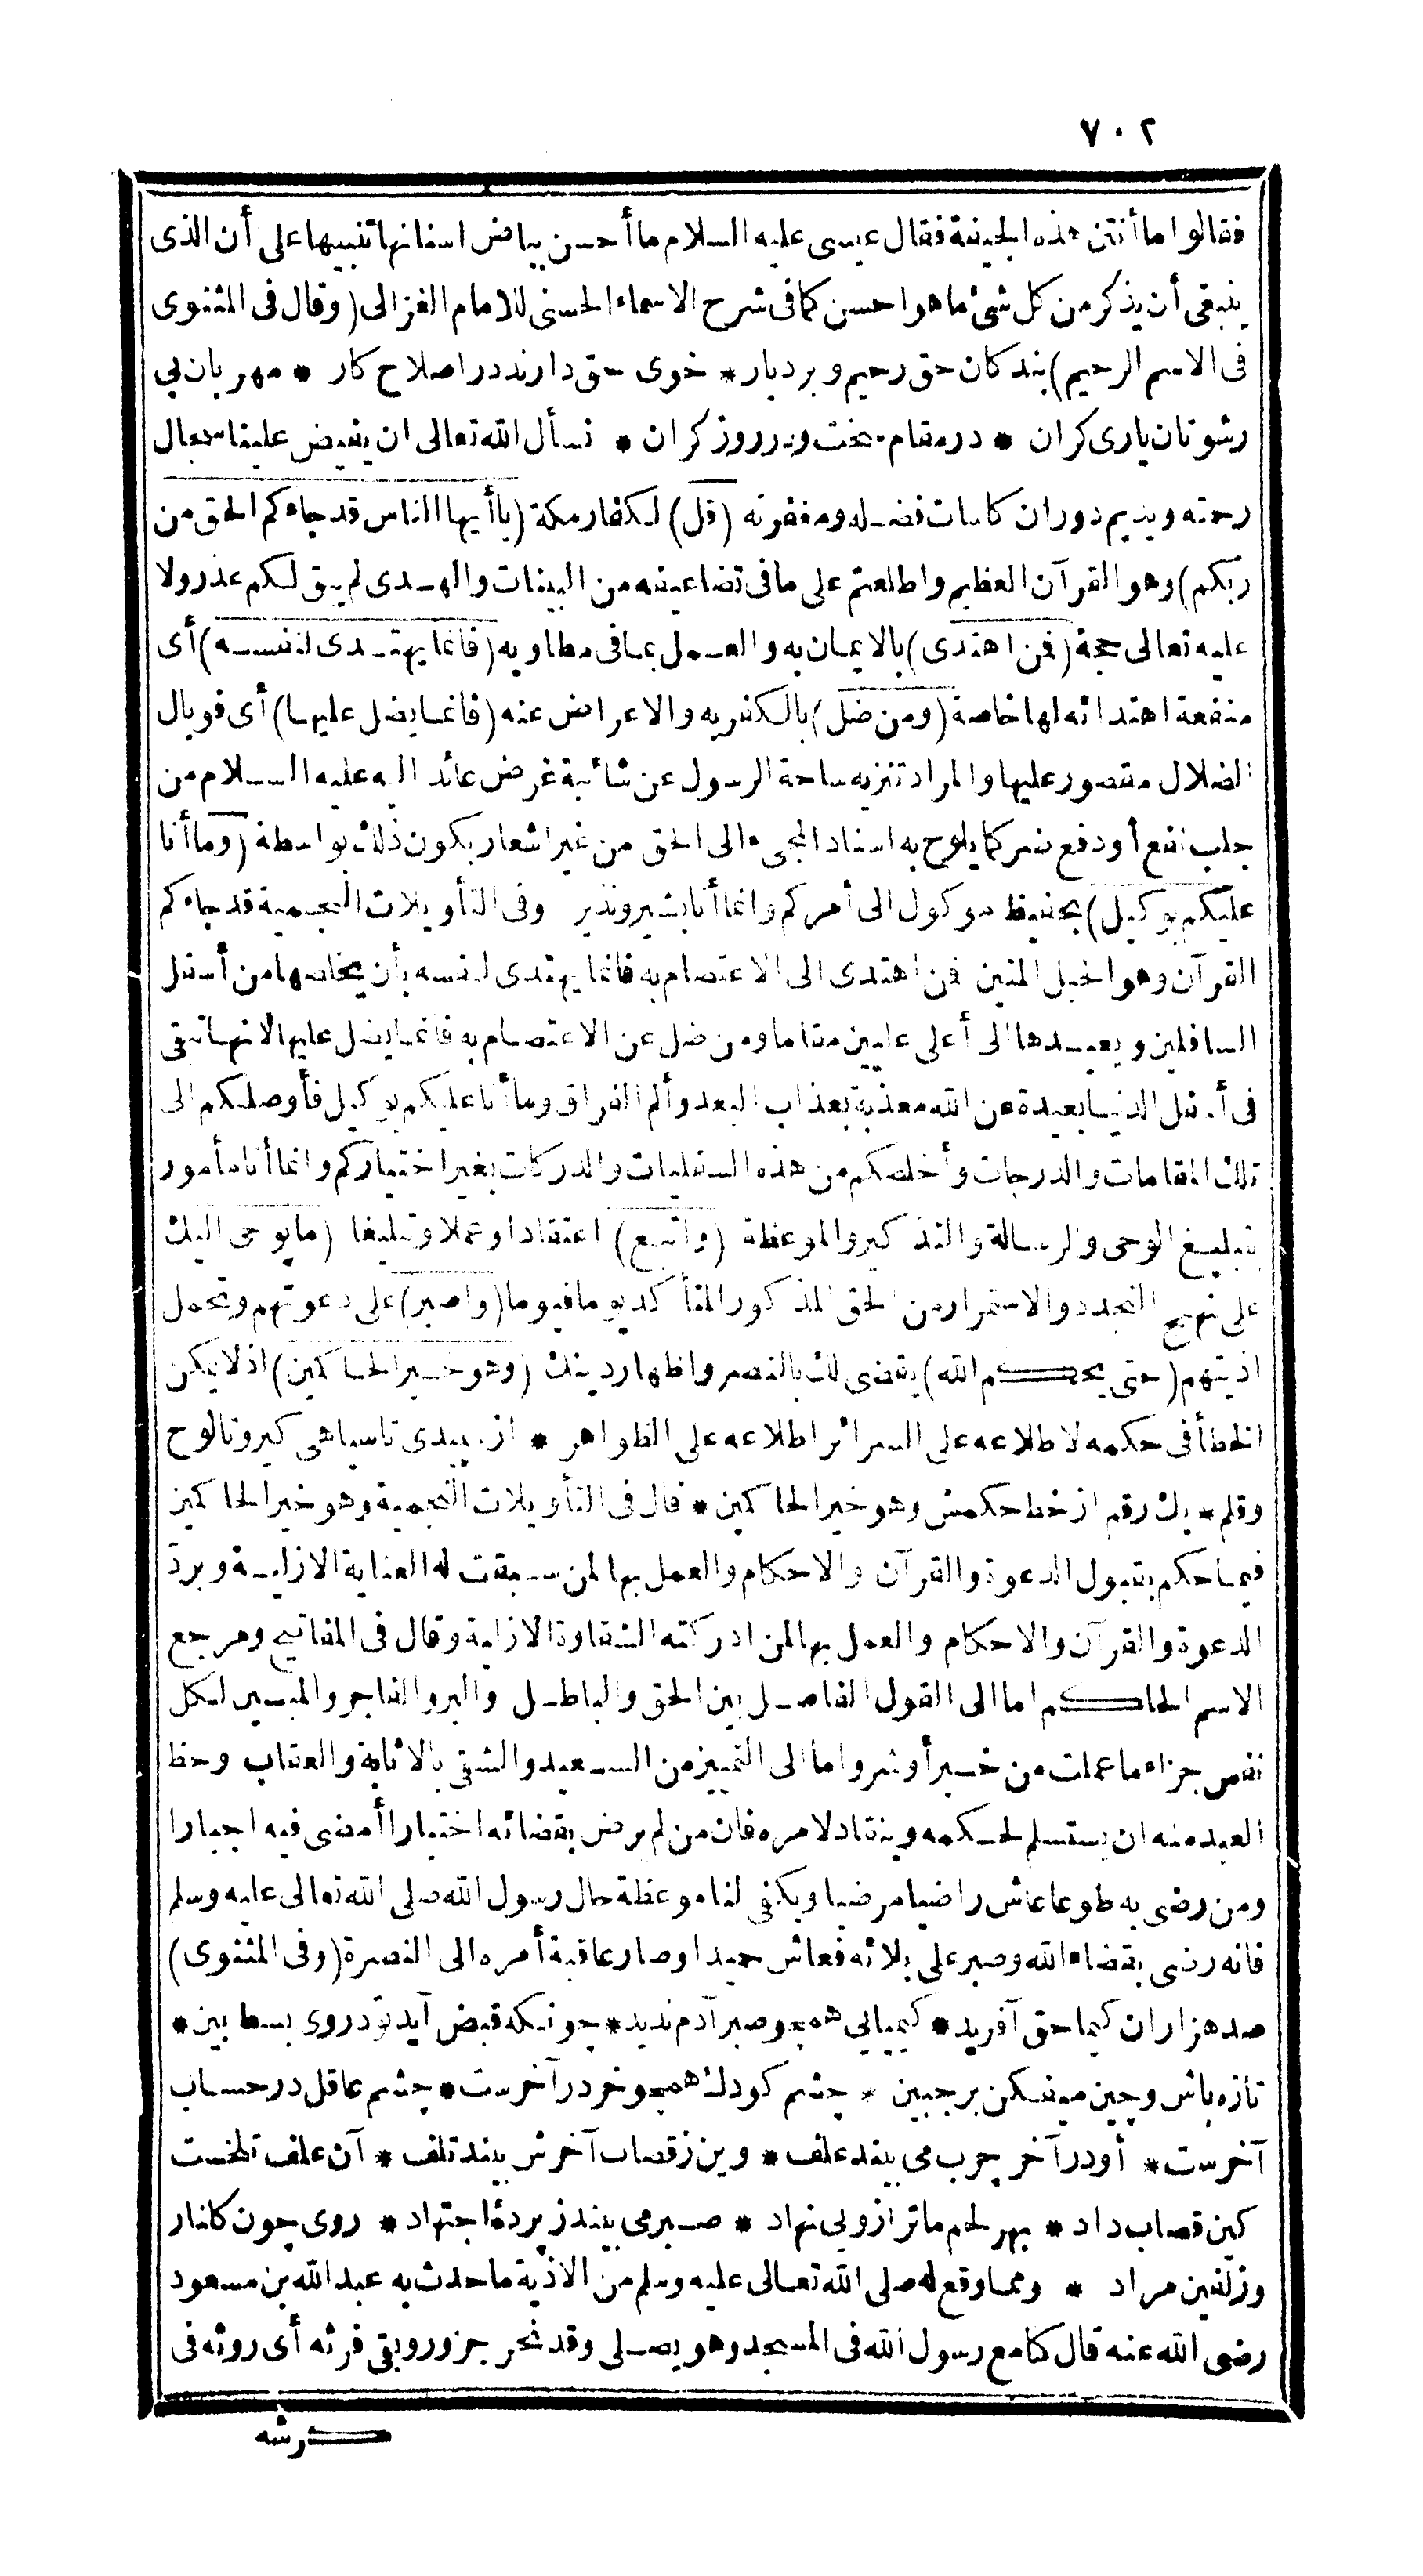 ٧٠٢
فقالوا ما أنتن هذه الجيفة فقال عيسى عليه السلام ما أحسن بياض اسنانها تنبيها على أن الذى
ينبغى أن يذكر من كل شئ ما هو احسن كما فى شرح الاسماء الحسنى للامام الغزالى (وقال فى المثنوى
فى الاسم الرحيم) بندكان حق رحيم وبردبار * خوى حق دارند در اصلاح كار * مهربان بى
رشوتان يارى كران * در مقام سخت ودر روز كران * نسأل الله تعالى ان يفيض علينا سجال
رحمته ويديم دوران كاسات فضله ومغفرته (قل) لكفار مكة (يا أيها الناس قد جاءكم الحق من
ربكم) وهو القرآن العظيم واطلعتم على ما فى تضاعيفه من البينات والهدى لم يبق لكم عذر ولا
عليه تعالى حجة (فمن اهتدى) بالايمان به والعمل بما فى مطاويه (فانما يهتدى لنفسه) أى
منفعة اهتدائه لها خاصة (ومن ضل) بالكفر به والاعراض عنه (فانما يضل عليها) أى فوبال
الضلال مقصور عليها والمراد تنزيه ساحة الرسول عن شائبة غرض عائد اليه عليه السلام من
جلب نفع أو دفع ضر كما يلوح به اسناد المجىء الى الحق من غير اشعار بكون ذلك بواسطة (وما أنا
عليكم بوكيل) بحفيظ موكول الى أمركم وانما أنا بشير ونذير وفى التأويلات النجمية قد جاءكم
القرآن وهو الحبل المتين فمن اهتدى الى الاعتصام به فانما يهتدى لنفسه بأن يخلصها من أسفل
السافلين ويعيدها الى أعلى عليين مقاما ومن ضل عن الاعتصام به فانما يضل عليها لانها تبقى
فى أسفل الدنيا بعيدة عن الله معذبة بعذاب البعد وألم الفراق وما أنا عليكم بوكيل فأوصلكم الى
تلك المقامات والدرجات وأخلصكم من هذه السفليات والدركات بغير اختياركم وانما أنا مأمور
بتبليغ الوحى والرسالة والتذكير والموعظة (واتبع) اعتقادا وعملا وتبليغا (ما يوحى اليك
على نهج التجدد والاستمرار من الحق المذكور المتأكد يوما فيوما (واصبر) على دعوتهم وتحمل
اذيتهم (حتى يحكم الله) يقضى لك بالنصر واظهار دينك (وهو خير الحاكمين) اذ لا يمكن
الخطأ فى حكمه لاطلاعه على السرائر اطلاعه على الظواهر * از سپيدى تا سياهى كير وتا لوح
وقلم * يك رقم از خط حكمش وهو خير الحاكمين * قال فى التأويلات النجمية وهو خير الحاكمين
فيما حكم بقبول الدعوة والقرآن والاحكام والعمل بها لمن سبقت له العناية الازلية وبردّ
الدعوة والقرآن والاحكام والعمل بها لمن ادركته الشقاوة الازلية وقال فى المفاتيح ومرجع
الاسم الحاكم اما الى القول الفاصل بين الحق والباطل والبر والفاجر والمبين لكل
نفس جزاء ما عملت من خير أو شر واما الى التمييز من السعيد والشقى بالاثابة والعقاب وحظ
العبد منه ان يستسلم لحكمه وينقاد لامره فان من لم يرض بقضائه اختيارا أمضى فيه اجبارا
ومن رضى به طوعا عاش راضيا مرضيا ويكفى لنا موعظة حال رسول الله صلى الله تعالى عليه وسلم
فانه رضى بقضاء الله وصبر على بلائه فعاش حميدا وصار عاقبة أمره الى النصرة (وفى المثنوى)
صد هزاران كيميا حق آفريد * كيميايى همچو صبر آدم نديد * چونكه قبض آيد تو در وى بسط بين *
تازه باش وچين ميفكن بر جبين * چشم كودك همچو خر در آخرست * چشم عاقل در حساب
آخرست * أو در آخر چرب مى بيند علف * وين ز قصاب آخرش بيند تلف * آن علف تلخست
كين قصاب داد * بهر لحم ما ترازويى نهاد * صبر مى بيند ز پردهٔ اجتهاد * روى چون كلنار
وزلفين مراد * ومما وقع له صلى الله تعالى عليه وسلم من الاذية ما حدث به عبد الله بن مسعود
رضى الله عنه قال كنا مع رسول الله فى المسجد وهو يصلى وقد نحر جزور وبقى فرثه أى روثه فى
كرشه